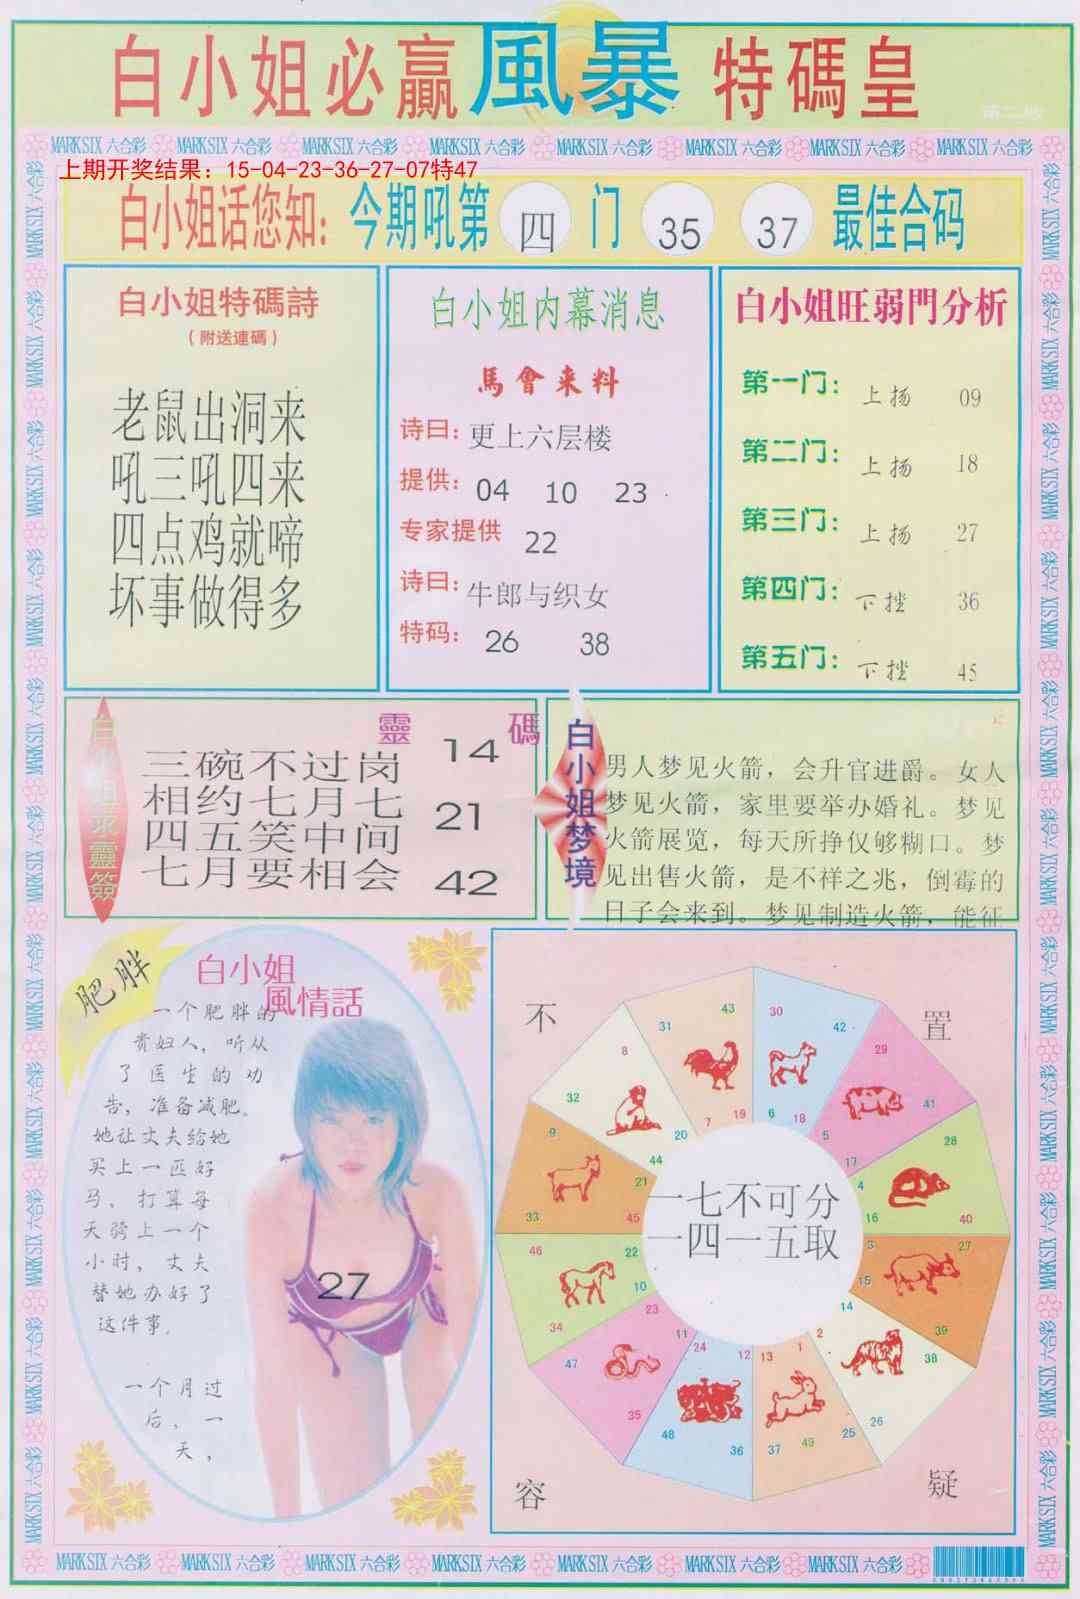 白小姐必贏風暴特碼皇
MARKSIX 六合彩 MARKSIX 六合彩 MARKSIX 六合彩 MARKSIX 六合彩 MARKSIX 六合彩 MARKSIX 六合彩 MARKSIX 六合彩 MARKSIX 六合彩
上期开奖结果：15-04-23-36-27-07特47
白小姐话您知：今期吼第四门 35 37 最佳合码
白小姐特碼詩
（附送連碼）
老鼠出洞来
吼三吼四来
四点鸡就啼
坏事做得多
白小姐内幕消息
馬會来料
诗曰：更上六层楼
提供：04 10 23
专家提供 22
诗曰：牛郎与织女
特码：26 38
白小姐旺弱門分析
第一门：上扬 09
第二门：上扬 18
第三门：上扬 27
第四门：下挫 36
第五门：下挫 45
靈碼
三碗不过岗
相约七月七
四五笑中间
七月要相会
14
21
42
白小姐梦境
男人梦见火箭，会升官进爵。女人
梦见火箭，家里要举办婚礼。梦见
火箭展览，每天所挣仅够糊口。梦
见出售火箭，是不祥之兆，倒霉的
日子会来到。梦见制造火箭，能征
肥胖
白小姐
風情話
一个肥胖的
贵妇人，听从
了医生的劝
告，准备减肥。
她让丈夫给她
买上一匹好
马，打算每
天骑上一个
小时，丈夫
替她办好了
这件事。
一个月过
后，一
天，
27
不 置
容 疑
一七不可分
一四一五取
43 31 19 7
30 42 18 6
29 41 17 5
28 40 16 4
27 39 15 3
38 26 14 2
37 49 25 13 1
48 36 24 12
47 35 23 11
46 34 22 10
9 33 21 45
8 32 20 44
MARKSIX 六合彩 MARKSIX 六合彩 MARKSIX 六合彩 MARKSIX 六合彩 MARKSIX 六合彩 MARKSIX 六合彩 MARKSIX 六合彩